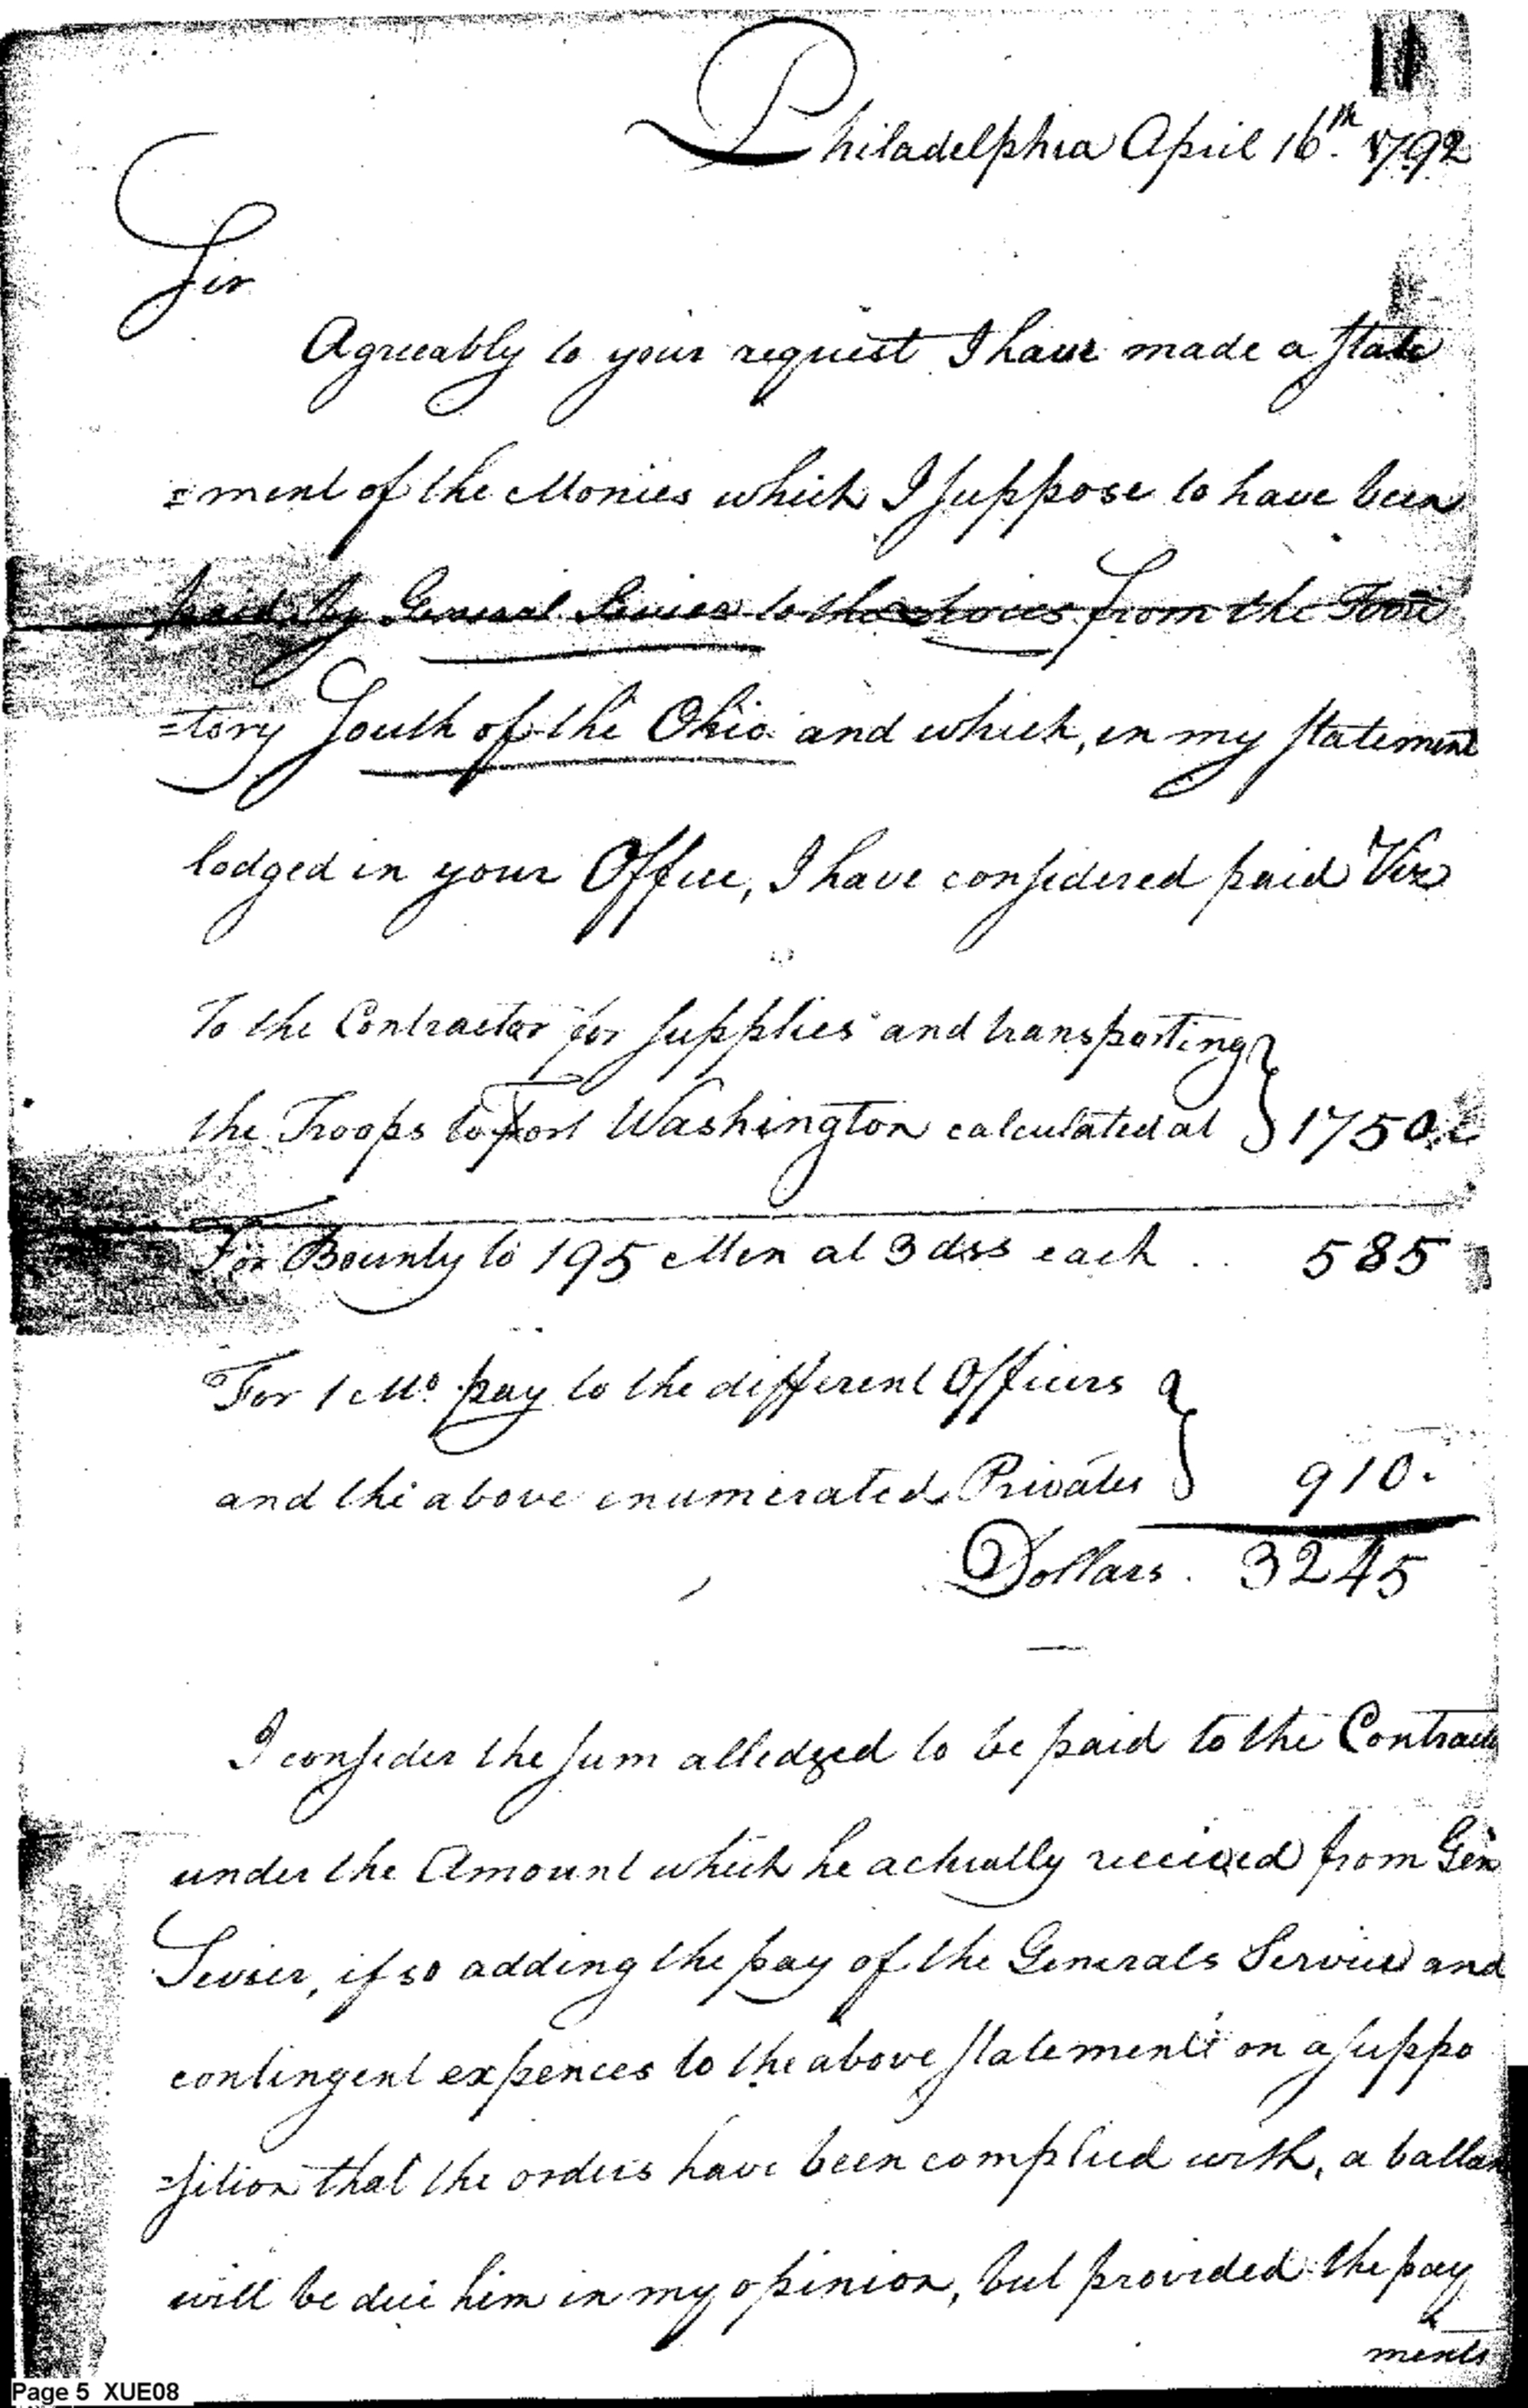 Philadelphia April 16th. 1792
Sir
Agreeably to your request I have made a State
=ment of the Monies which I suppose to have been
paid by General Sevier to the from the
=tory South of the Ohio and which, in my statement
lodged in your Office, I have considered paid Viz
To the Contractor for Supplies and transporting
the Troops to Fort Washington calculated at } 1750
For Bounty to 195 Men at 3 dss each . . 585
For 1 Mo. pay to the different Officers
and the above enumerated Privates } 910.
Dollars . 3245
I consider the sum alledged to be paid to the
under the Amount which he actually received from Gen
Sevier, if so adding the pay of the Generals Service and
contingent expences to the above statement on a suppo
=sition that the orders have been complied with, a
will be due him in my opinion, but provided the pay
ments
Page 5 XUE08